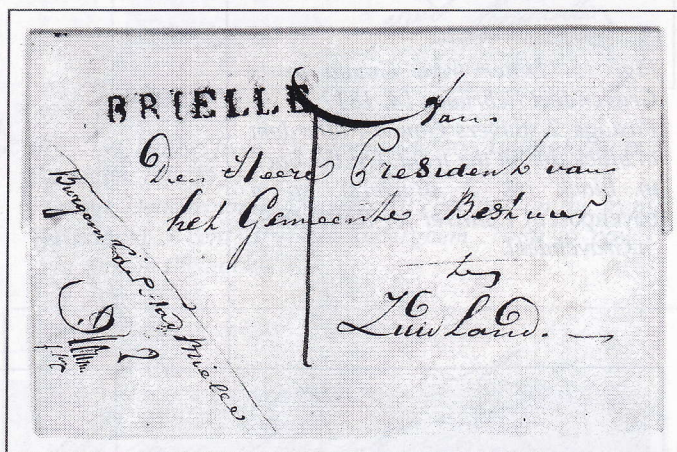 BRIELLE
Aan
Den Heere President van
het Gemeente Bestuur
te
Zuidland.
Burgem. der Stad Brielle